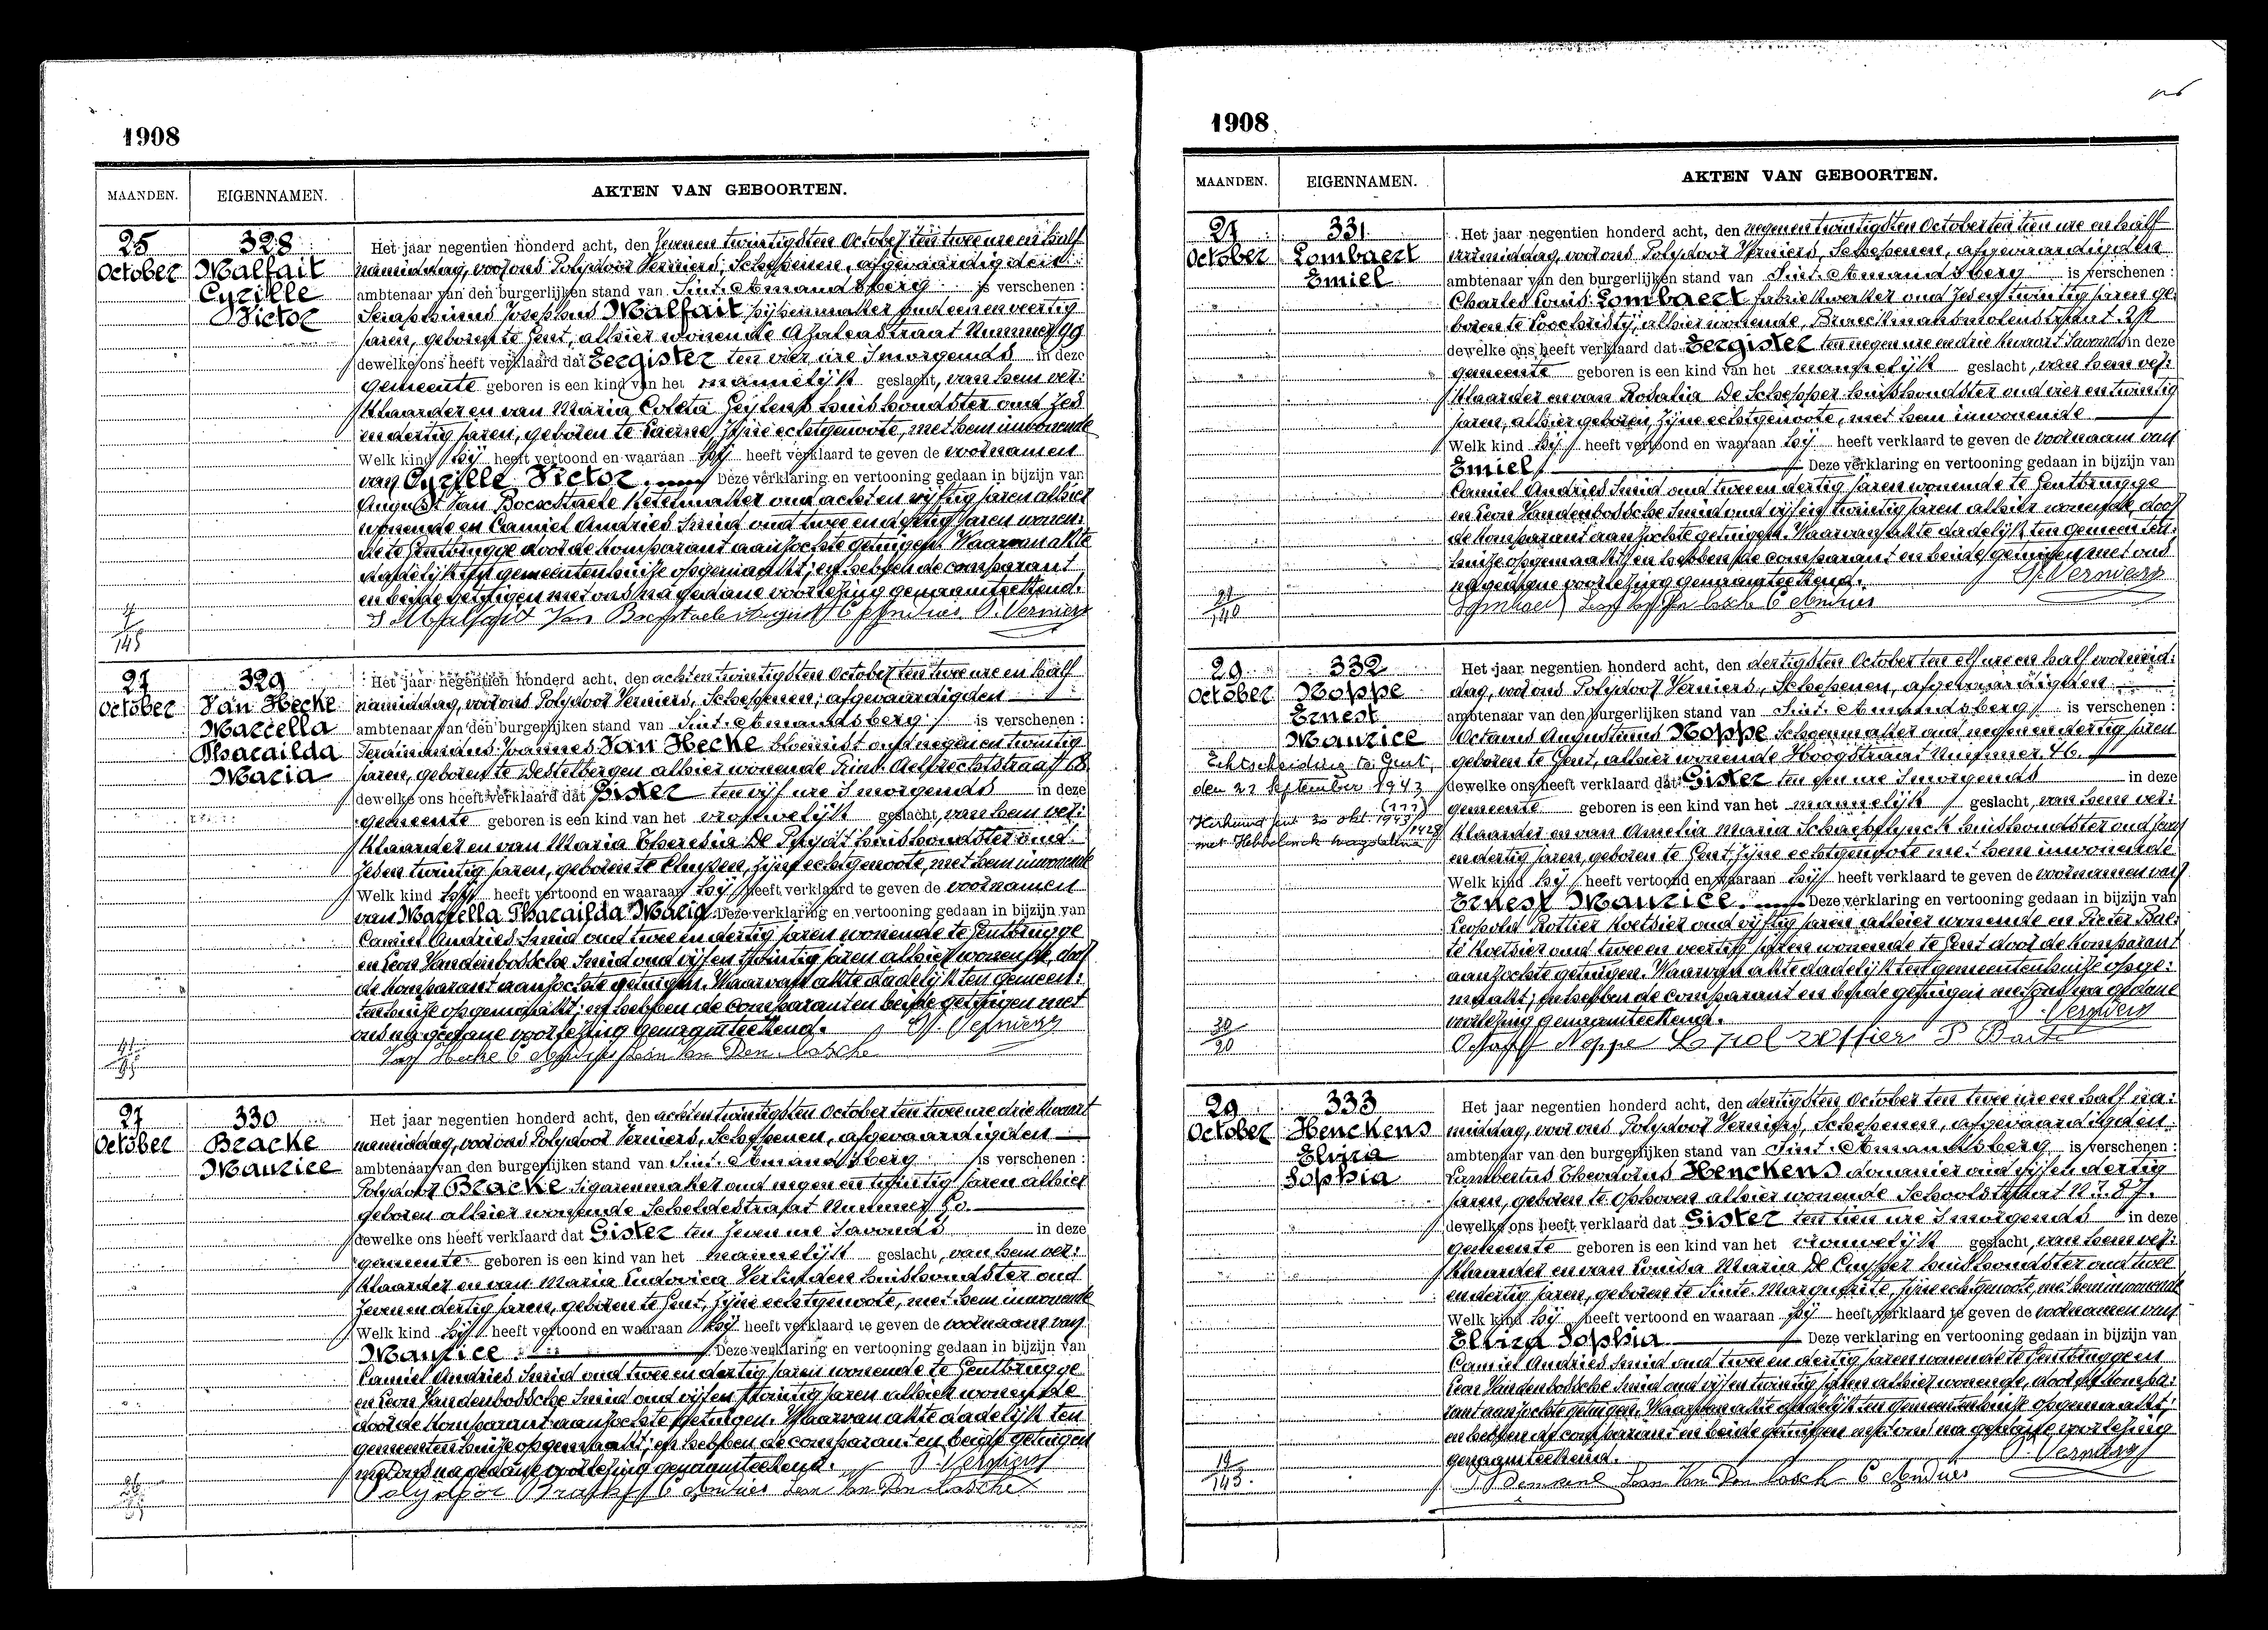 1908
MAANDEN. EIGENNAMEN. AKTEN VAN GEBOORTEN.
25 October
328
Malfait
Cyrille
Victor
Het jaar negentien honderd acht, den zeven en twintigsten October ten twee ure en half
namiddag, voor ons Polydoor Verniers, Schepenen, afgevaardigden
ambtenaar van den burgerlijken stand van Sint-Amandsberg is verschenen :
Seraphinus Josephus Malfait pijpenmaker oud een en veertig
jaren, geboren te Gent, alhier wonende Azaleastraat Nummer 99
dewelke ons heeft verklaard dat Eergister ten vier ure 's morgends in deze
gemeente geboren is een kind van het mannelijk geslacht, van hem ver:
klaarder en van Maria Coleta huishoudster oud zes
en dertig jaren, geboren te Laerne, zijne echtgenoote, met hem inwonende
Welk kind hij heeft vertoond en waaraan hij heeft verklaard te geven de voornamen
van Cyrille Victor. Deze verklaring en vertooning gedaan in bijzijn van
August Van Bocxstaele Ketelmaker oud acht en vijftig jaren alhier
wonende en Camiel Andries Smid oud twee en dertig jaren wonen:
de te Gentbrugge door de komparant aanzochte getuigen. Waarvan akte
dadelijk ten gemeentenhuize opgemaakt; en hebben de comparant
en beide getuigen met ons na gedane voorlezing genaamteekend.
S Malfait Van Bocxstaele August C Andries P. Verniers
27 October
329
Van Hecke
Marcella
Pharaïlda
Maria
Het jaar negentien honderd acht, den acht en twintigsten October ten twee ure en half
namiddag, voor ons Polydoor Verniers, Schepenen, afgevaardigden
ambtenaar van den burgerlijken stand van Sint-Amandsberg is verschenen :
Ferdinandus Joannes Van Hecke bloemist oud negen en twintig
jaren, geboren te Destelbergen alhier wonende Prins Aelbrechtstraat
dewelke ons heeft verklaard dat Gister ten vijf ure 's morgends in deze
gemeente geboren is een kind van het vrouwelijk geslacht, van hem ver:
klaarder en van Maria Theresia De Pruydt huishoudster oud
zes en twintig jaren, geboren te Cluysen, zijne echtgenoote, met hem inwonende
Welk kind hij heeft vertoond en waaraan hij heeft verklaard te geven de voornamen
van Marcella Pharaïlda Maria. Deze verklaring en vertooning gedaan in bijzijn van
Camiel Andries Smid oud twee en dertig jaren wonende te Gentbrugge
en Leon Vandenbossche Smid oud vijf en twintig jaren alhier wonende, door
de komparant aanzochte getuigen. Waarvan akte dadelijk ten gemeen:
tenhuize opgemaakt; en hebben de comparant en beide getuigen met
ons na gedane voorlezing genaamteekend. P. Verniers
Van Hecke C Andries Leon Van Den Bossche
27 October
330
Bracke
Maurice
Het jaar negentien honderd acht, den acht en twintigsten October ten twee ure drie kwaart
namiddag, voor ons Polydoor Verniers, Schepenen, afgevaardigden
ambtenaar van den burgerlijken stand van Sint-Amandsberg is verschenen :
Polydoor Bracke Sigarenmaker oud negen en twintig jaren alhier
geboren alhier wonende Scheldestraat Nummer 50.
dewelke ons heeft verklaard dat Gister ten zeven ure 's avonds in deze
gemeente geboren is een kind van het mannelijk geslacht, van hem ver:
klaarder en van Maria Ludovica Verlinden huishoudster oud
zeven en dertig jaren, geboren te Gent, zijne echtgenoote, met hem inwonende
Welk kind hij heeft vertoond en waaraan hij heeft verklaard te geven de voornaam van
Maurice. Deze verklaring en vertooning gedaan in bijzijn van
Camiel Andries Smid oud twee en dertig jaren wonende te Gentbrugge
en Leon Vandenbossche Smid oud vijf en twintig jaren alhier wonende
door de komparant aanzochte getuigen. Waarvan akte dadelijk ten
gemeentenhuize opgemaakt; en hebben de comparant en beide getuigen
met ons na gedane voorlezing genaamteekend. P. Verniers
Polydoor Bracke C Andries Leon Van Den Bossche
1908
MAANDEN. EIGENNAMEN. AKTEN VAN GEBOORTEN.
27 October
331
Lombaert
Emiel
Het jaar negentien honderd acht, den negen en twintigsten October ten tien ure en half
vormiddag, voor ons Polydoor Verniers, Schepenen, afgevaardigden
ambtenaar van den burgerlijken stand van Sint-Amandsberg is verschenen :
Charles Louis Lombaert fabriekwerker oud zes en twintig jaren ge:
boren te Loochristy, alhier wonende, Braeckmansmolenstraat
dewelke ons heeft verklaard dat Eergister ten negen ure en drie kwaart 's avonds in deze
gemeente geboren is een kind van het mannelijk geslacht, van hem ver:
klaarder en van Rosalia De Schepper huishoudster oud vier en twintig
jaren, alhier geboren, zijne echtgenoote, met hem inwonende
Welk kind hij heeft vertoond en waaraan hij heeft verklaard te geven de voornaam van
Emiel. Deze verklaring en vertooning gedaan in bijzijn van
Camiel Andries Smid oud twee en dertig jaren wonende te Gentbrugge
en Leon Vandenbossche Smid oud vijf en twintig jaren alhier wonende, door
de komparant aanzochte getuigen. Waarvan akte dadelijk ten gemeenten:
huize opgemaakt; en hebben de comparant en beide getuigen met ons
na gedane voorlezing genaamteekend. P. Verniers
Lombaert Leon Van Den Bossche C Andries
29 October
332
Noppe
Ernest
Maurice
Echtscheiding te Gent,
den 22 September 1943
(223)
Herhuwd Gent 30 okt 1943
met Hebbelinck Magdalena
Het jaar negentien honderd acht, den dertigsten October ten elf ure en half voormid:
dag, voor ons Polydoor Verniers, Schepenen, afgevaardigden
ambtenaar van den burgerlijken stand van Sint-Amandsberg is verschenen :
Octavus Augustinus Noppe Schoenmaker oud negen en dertig jaren
geboren te Gent, alhier wonende Hoogstraat Nummer 46.
dewelke ons heeft verklaard dat Gister ten een ure 's morgends in deze
gemeente geboren is een kind van het mannelijk geslacht, van hem ver:
klaarder en van Amelia Maria huishoudster oud
en dertig jaren, geboren te Gent zijne echtgenoote met hem inwonende
Welk kind hij heeft vertoond en waaraan hij heeft verklaard te geven de voornamen van
Ernest Maurice. Deze verklaring en vertooning gedaan in bijzijn van
Leopold Rottier Koetsier oud vijftig jaren alhier wonende en Pieter Bae:
te Koetsier oud twee en veertig jaren wonende te Gent door de komparant
aanzochte getuigen. Waarvan akte dadelijk ten gemeentenhuize opge:
maakt; en hebben de comparant en beide getuigen met ons na gedane
voorlezing genaamteekend. P. Verniers
Noppe Leopol Rottier P Baete
29 October
333
Henckens
Elvira
Sophia
Het jaar negentien honderd acht, den dertigsten October ten twee ure en half na:
middag, voor ons Polydoor Verniers, Schepenen, afgevaardigden
ambtenaar van den burgerlijken stand van Sint-Amandsberg is verschenen :
Lambertus Theodorus Henckens douanier oud vijf en dertig
jaren, geboren te Ophoven alhier wonende Schoolstraat Nr. 87.
dewelke ons heeft verklaard dat Gister ten tien ure 's morgends in deze
gemeente geboren is een kind van het vrouwelijk geslacht, van hem ver:
klaarder en van Louisa Maria De Cuyper huishoudster oud twee
en dertig jaren, geboren te Sinte Margueríte, zijne echtgenoote, met hem inwonende
Welk kind hij heeft vertoond en waaraan hij heeft verklaard te geven de voornamen van
Elvira Sophia Deze verklaring en vertooning gedaan in bijzijn van
Camiel Andries Smid oud twee en dertig jaren wonende te Gentbrugge en
Leon Vandenbossche Smid oud vijf en twintig jaren alhier wonende, door de kompa:
rant aanzochte getuigen. Waarvan akte dadelijk ten gemeentenhuize opgemaakt;
en hebben de comparant en beide getuigen met ons na gedane voorlezing
genaamteekend. P. Verniers
Leon Van Den Bossche C Andries